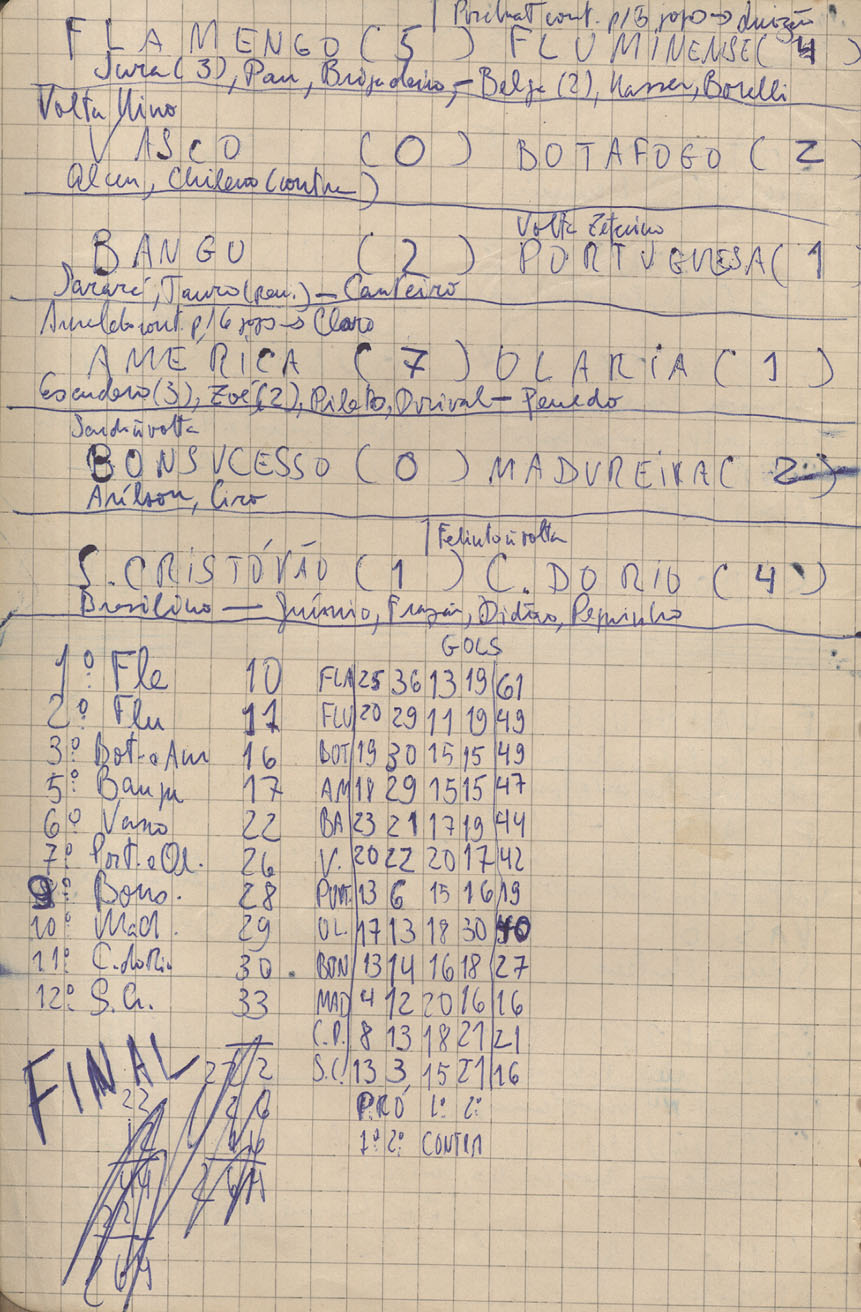 FLAMENGO ( 5 ) FLUMINENSE ( 4 )
Jura (3), Pan, Brigadeiro, - Belga (2), Nasser, Borelli
Volta Nino
VASCO ( 0 ) BOTAFOGO ( 2
Chileno (contra)
Volta Zeferino
BANGU ( 2 ) PORTUGUESA ( 1
Jararé, Tauro (pen.) - Canteiro
cont. p/6 jogos → Claro
AMÉRICA ( 7 ) OLARIA ( 1 )
Escudero (3), Zoé (2), Piloto, Durival - Penedo
volta
BONSUCESSO ( 0 ) MADUREIRA ( 2 )
Arílson, Ciro
Felinto volta
S. CRISTÓVÃO ( 1 ) C. DO RIO ( 4 )
Brasilino - Frazão, Didão, Pepinho
GOLS
1º Fla 10 FLA 25 36 13 19 61
2º Flu 11 FLU 20 29 11 19 49
3º Bot. e Am 16 BOT 19 30 15 15 49
5º Bangu 17 AM 18 29 15 15 47
6º Vasco 22 BA 23 21 17 19 44
7º Port. e Ol. 26 V. 20 22 20 17 42
9º Bons. 28 PORT. 13 6 15 16 19
10º Mad. 29 OL. 17 13 18 30 40
11º C. do Rio 30 . BON 13 14 16 18 27
12º S. Cr. 33 MAD 4 12 20 16 16
C.R. 8 13 18 21 21
S.C. 13 3 15 21 16
FINAL
PRÓ 1º 2º
1º 2º CONTRA